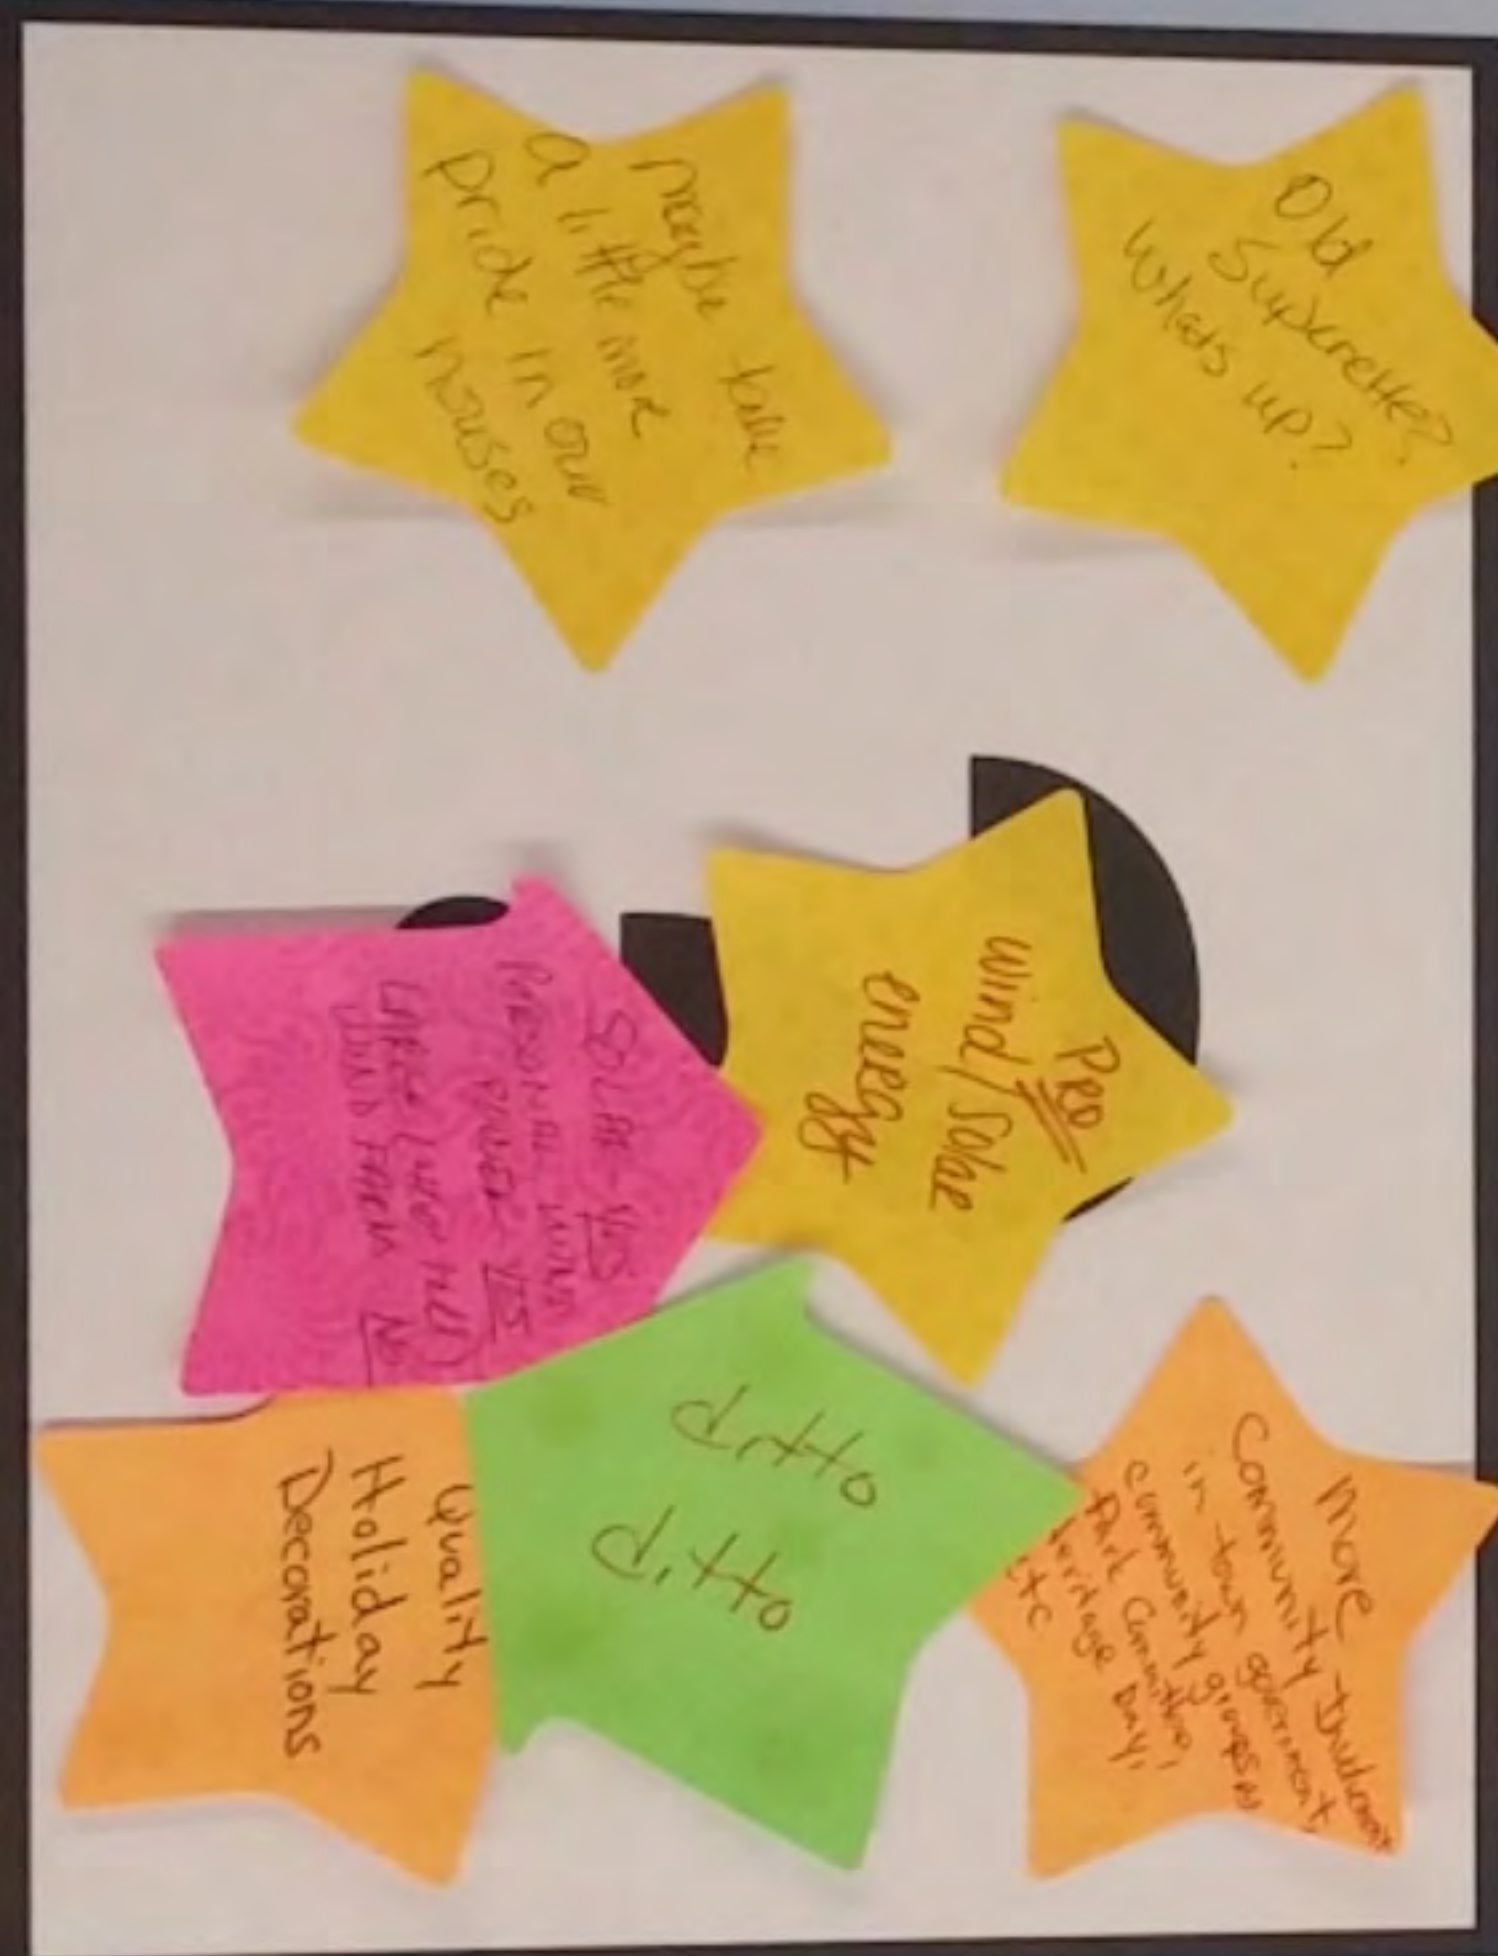 Old
Superette?
Whats up?
maybe take
a little more
pride in our
houses
PRO
wind/Solar
energy
SOLAR - YES
PERSONAL WIND
POWER YES
WIND FARM NO
ditto
ditto
More
Community
in town government,
community groups
Park Committee,
Heritage Day,
etc
Quality
Holiday
Decorations